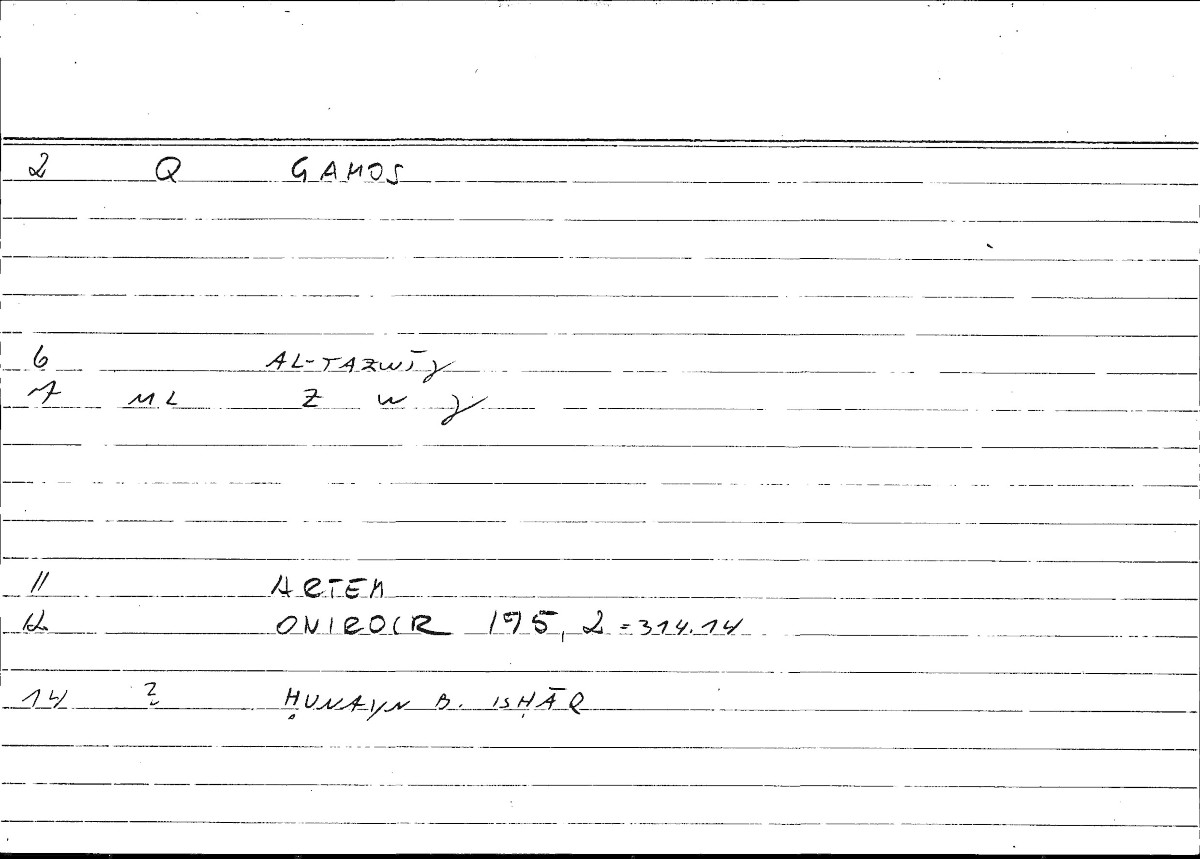 2 Q GAMOS
6 AL-TAZWĪJ
7 ML Z W J
11 ARTEM
12 ONIROCR 175, 2 = 314.14
14 2 ḤUNAYN B. ISḤĀQ